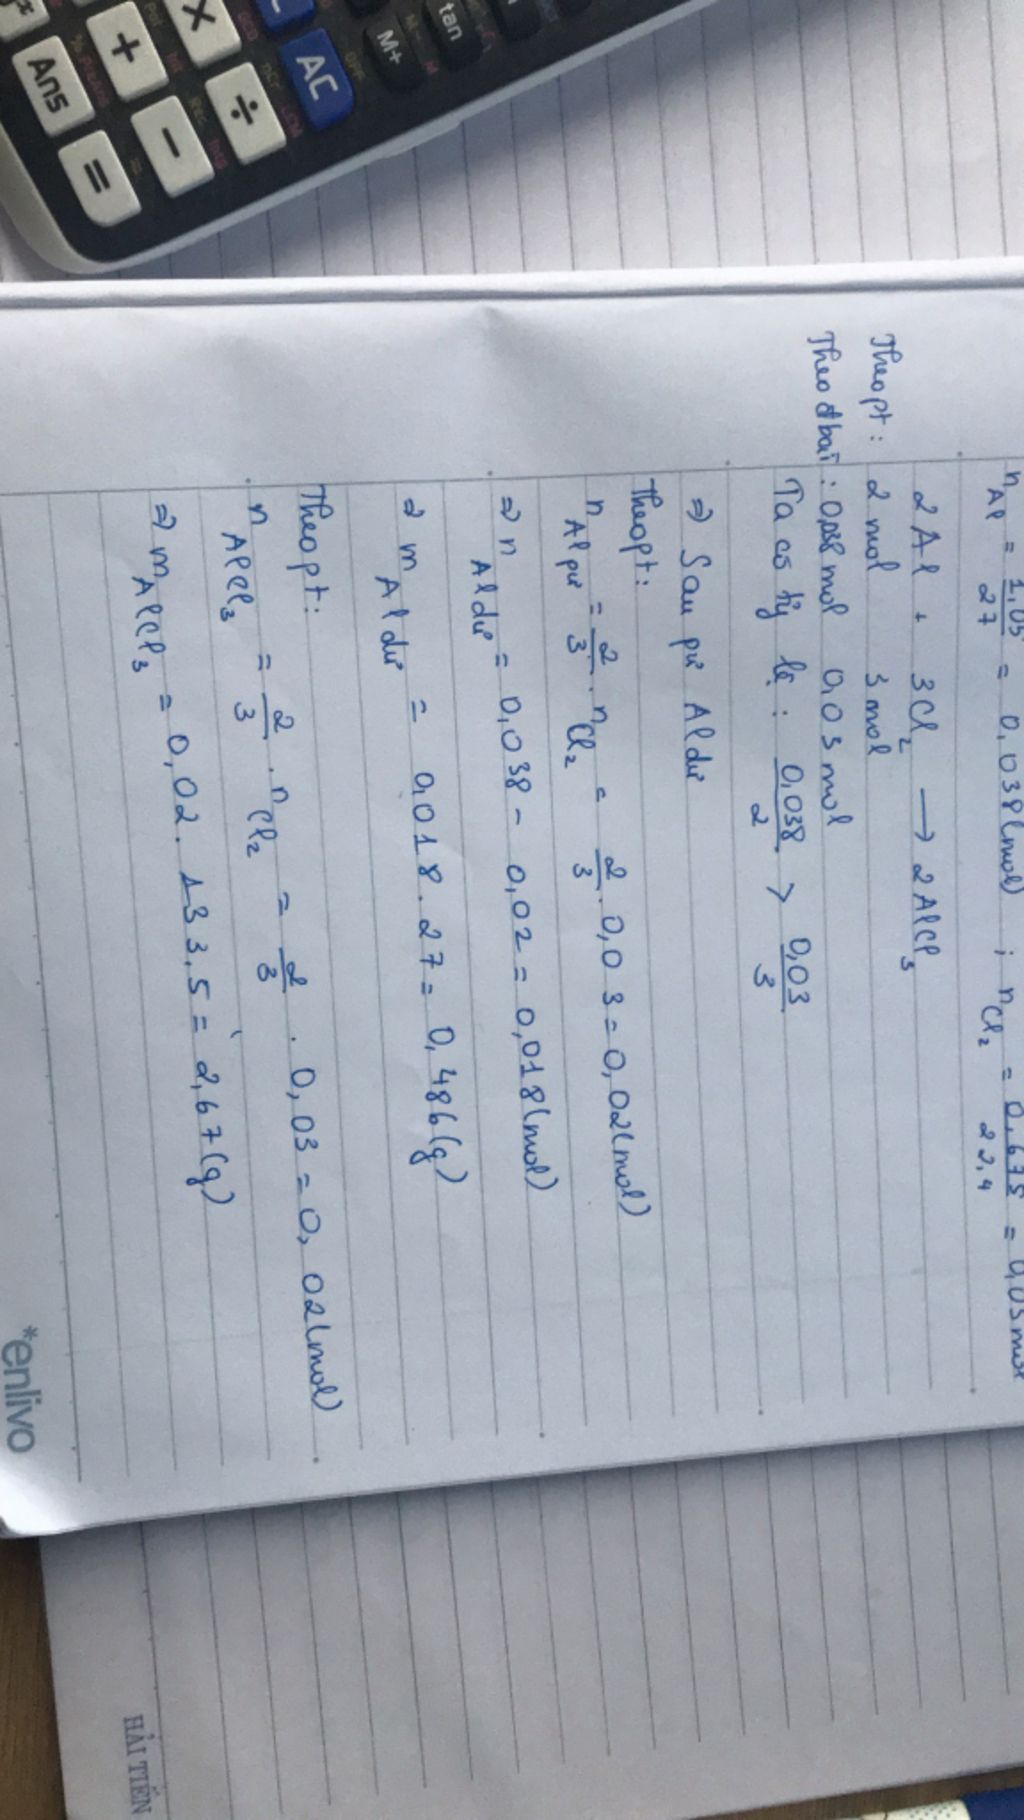 n Al = 1,05/27 = 0,038 (mol) ; n Cl2 = 0,675/22,4 = 0,03 mol
2Al + 3Cl2 → 2AlCl3
Theo pt : 2 mol 3 mol
Theo đbài : 0,038 mol 0,03 mol
Ta có tỷ lệ : 0,038/2 > 0,03/3
⇒ Sau pư Al dư
Theo pt :
n Al pư = 2/3 . n Cl2 = 2/3 . 0,03 = 0,02 (mol)
⇒ n Al dư = 0,038 - 0,02 = 0,018 (mol)
⇒ m Al dư = 0,018 . 27 = 0,486 (g)
Theo pt :
n AlCl3 = 2/3 . n Cl2 = 2/3 . 0,03 = 0,02 (mol)
⇒ m AlCl3 = 0,02 . 133,5 = 2,67 (g)
*enlivo
HẢI TIẾN
tan
M+
AC
×
÷
+
-
Ans
=